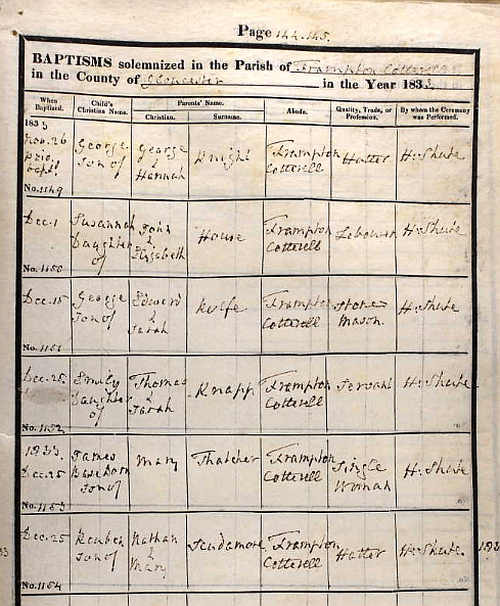 Page 144.145.
BAPTISMS solemnized in the Parish of Frampton Cotterell
in the County of Gloucester in the Year 1833
When Baptized. Child's Christian Name. Parents' Name. Christian. Surname. Abode. Quality, Trade, or Profession. By whom the Ceremony was Performed.
1833
Nov. 26 George Son of George & Hannah Knight Frampton Cotterell Hatter H. Shute
No. 1149
Dec. 1 Susannah Daughter of John & Elizabeth House Frampton Cotterell Labourer H. Shute
No. 1150
Dec. 15 George Son of Edward & Sarah Rolfe Frampton Cotterell Stone Mason. H. Shute
No. 1151
Dec. 25. Emily Daughter of Thomas & Sarah Knapp Frampton Cotterell Servant H. Shute
No. 1152
1833. Dec. 25 James Base born Son of Mary Thatcher Frampton Cotterell Single Woman H. Shute
No. 1153
Dec. 25 Reuben Son of Nathan & Mary Scudamore Frampton Cotterell Hatter H. Shute.
No. 1154